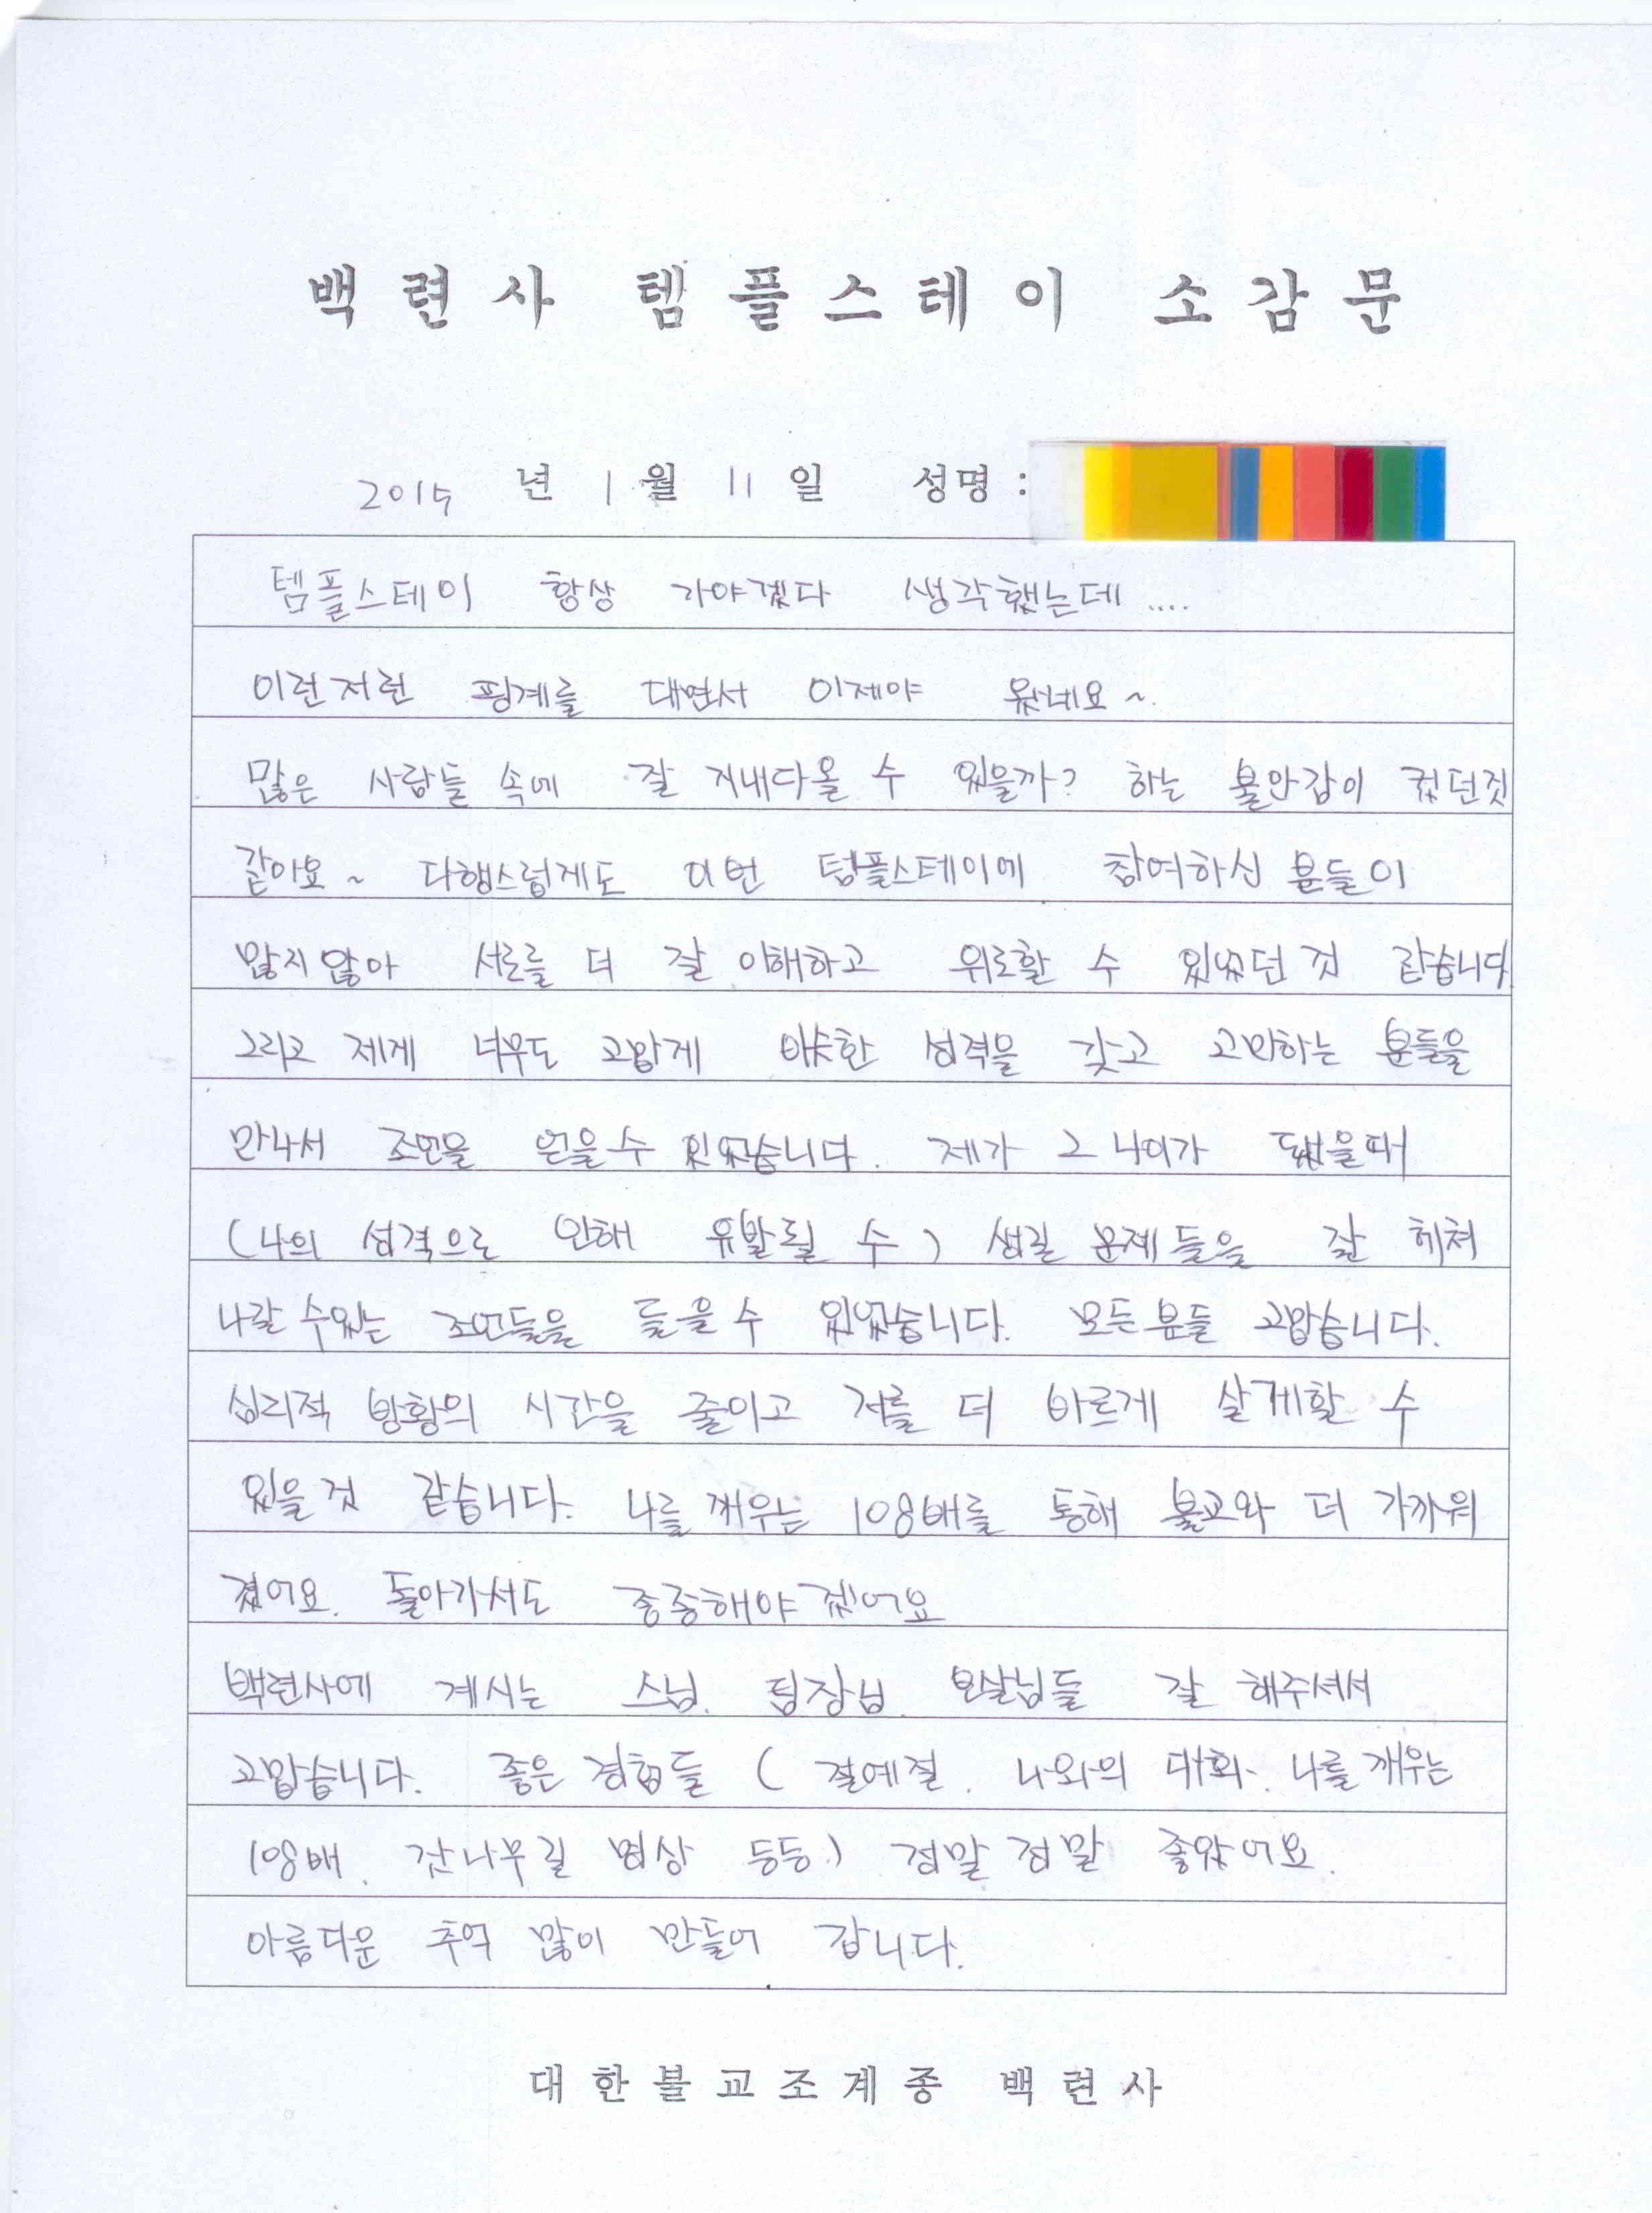 백련사 템플스테이 소감문
2015 년 1 월 11 일 성명 :
템플스테이 항상 가야겠다 생각했는데 ....
이런저런 핑계를 대면서 이제야 왔네요 ~.
많은 사람들 속에 잘 지내다올 수 있을까? 하는 불안감이 컸던것
같아요 ~ 다행스럽게도 이번 템플스테이에 참여하신 분들이
많지않아 서로를 더 잘 이해하고 위로할 수 있었던 것 같습니다
그리고 제게 너무도 고맙게 비슷한 성격을 갖고 고민하는 분들을
만나서 조언을 얻을수 있었습니다. 제가 그 나이가 됐을때
(나의 성격으로 인해 유발될 수) 생길 문제들을 잘 헤쳐
나갈 수있는 조언들을 들을수 있었습니다. 모든분들 고맙습니다.
심리적 방황의 시간을 줄이고 저를 더 바르게 살게할 수
있을것 같습니다. 나를 깨우는 108배를 통해 불교와 더 가까워
졌어요. 돌아가서도 종종해야겠어요
백련사에 계시는 스님. 팀장님. 보살님들 잘 해주셔서
고맙습니다. 좋은 경험들 ( 절예절. 나와의 대화. 나를 깨우는
108배. 잣나무길 명상 등등.) 정말 정말 좋았어요.
아름다운 추억 많이 만들어 갑니다.
대한불교조계종 백련사